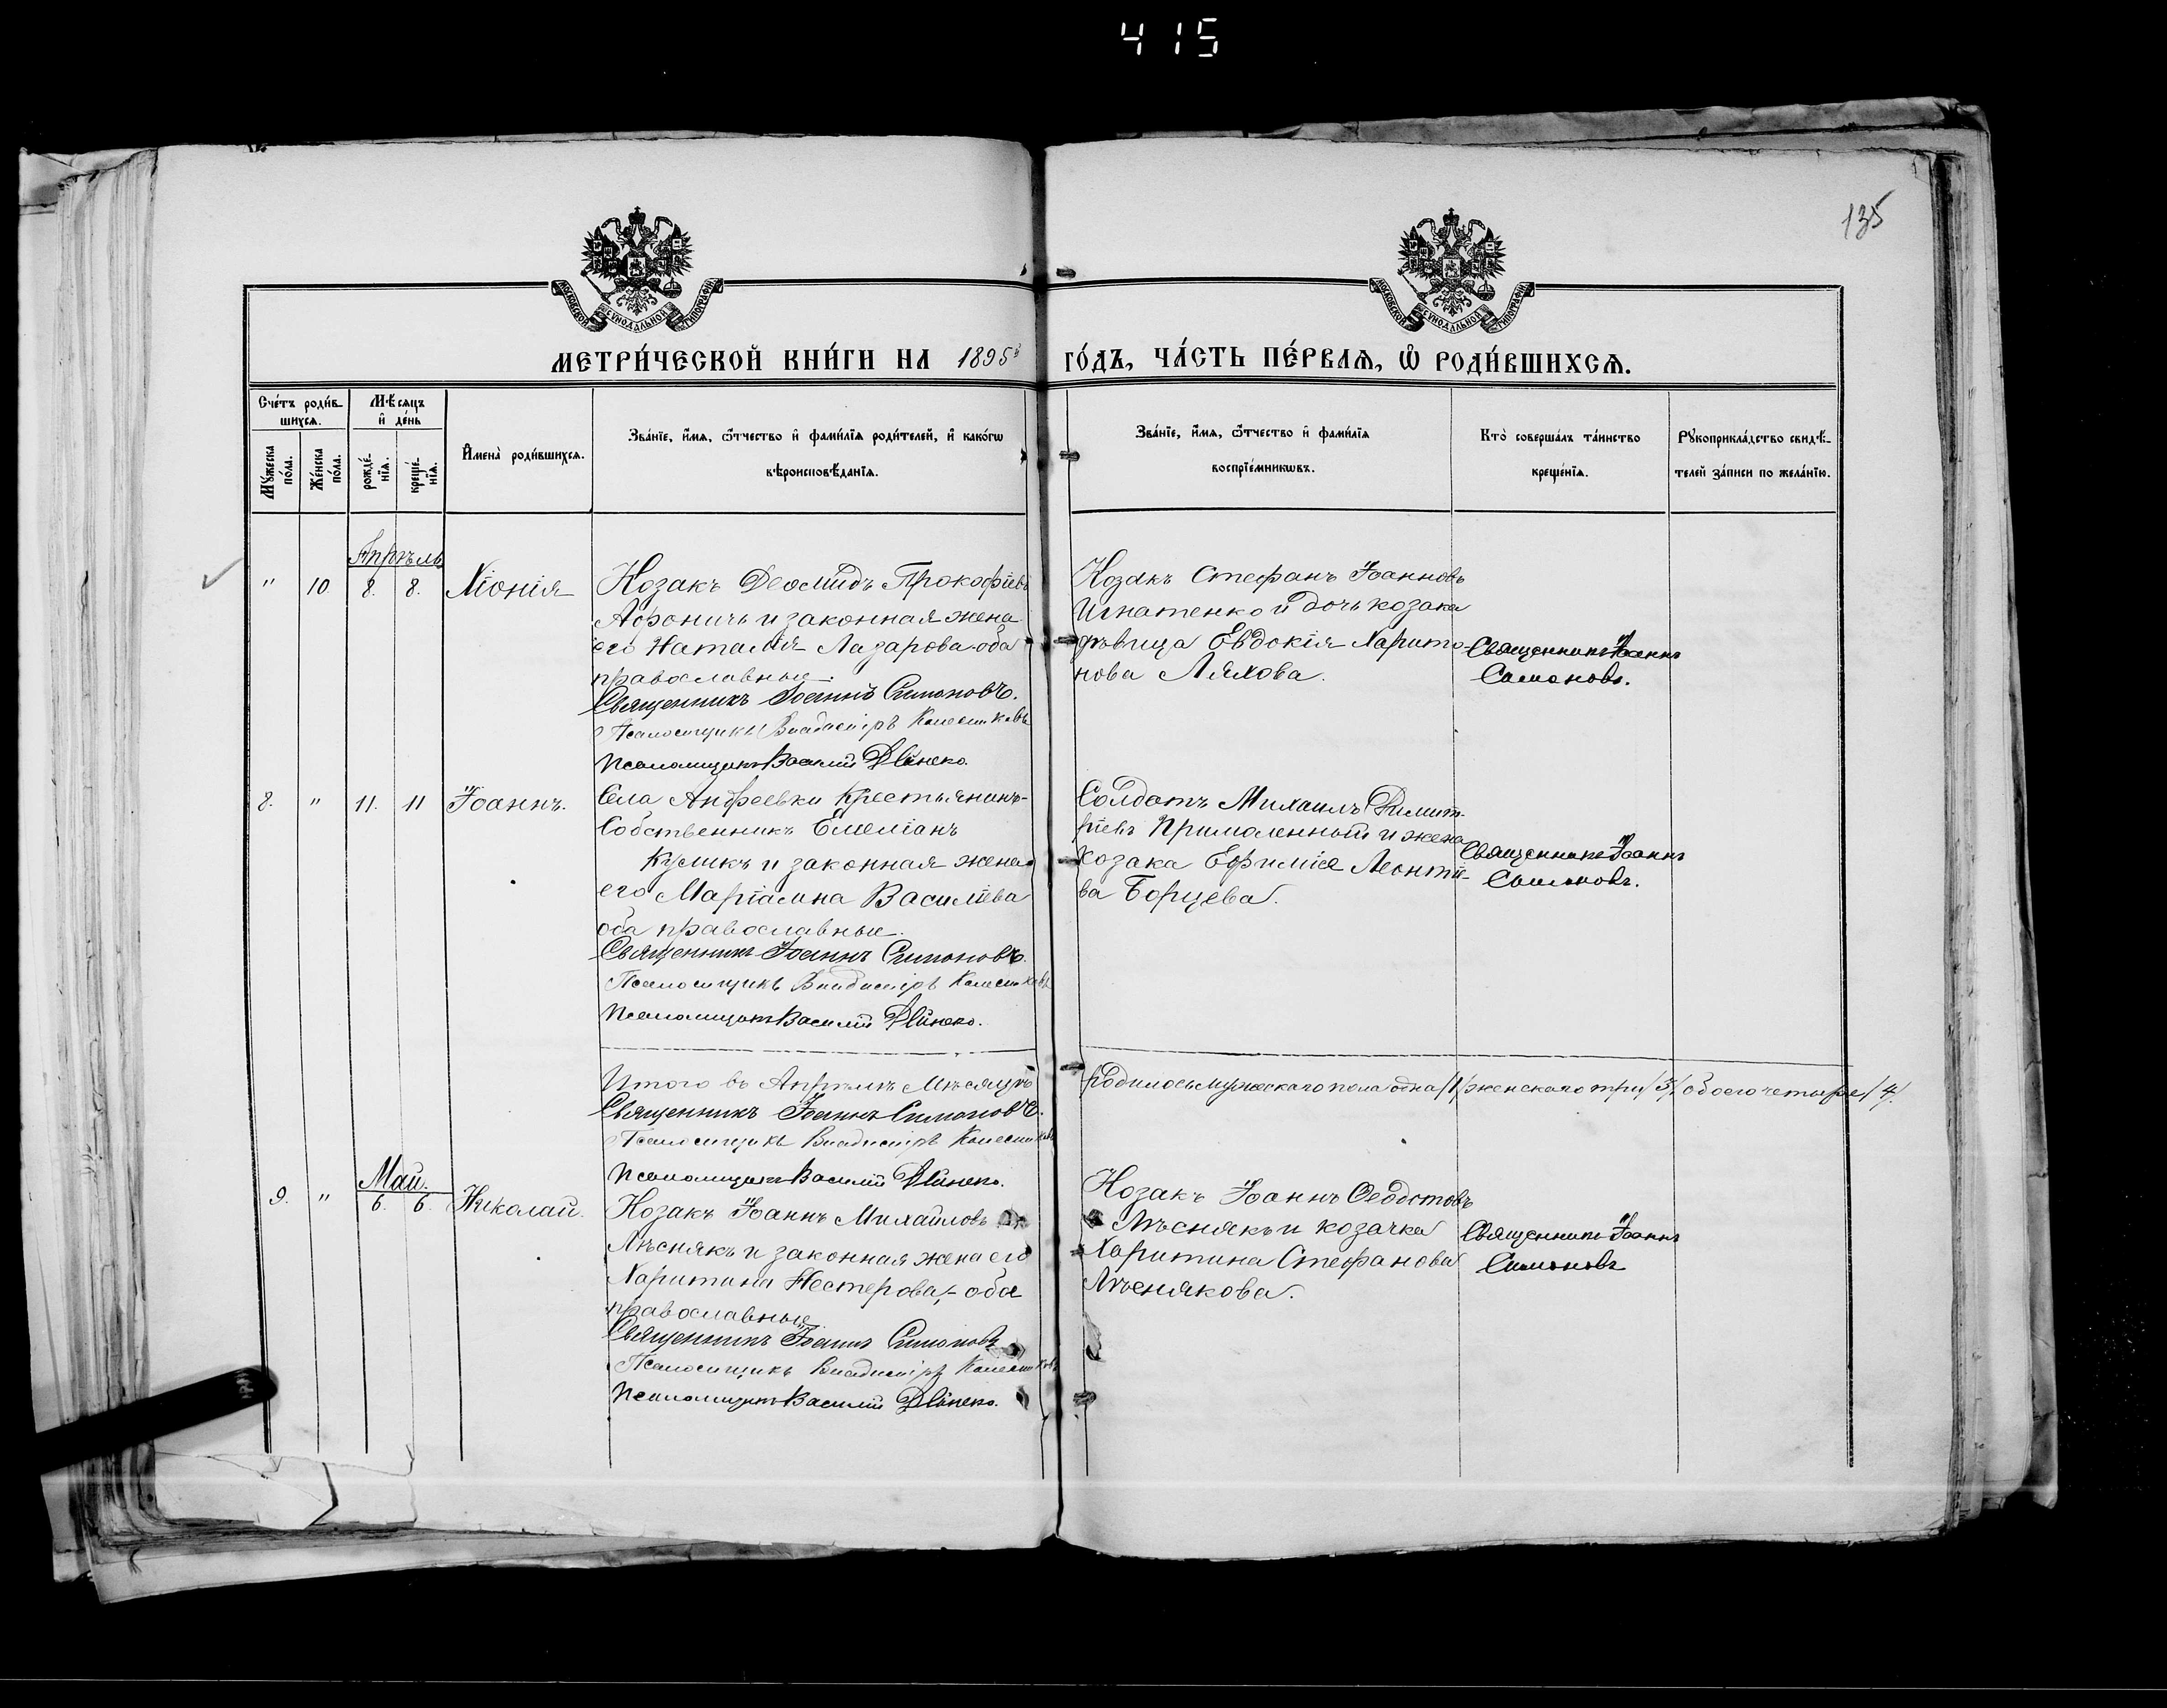 415
135
МОСКОВСКОЙ СѴНОДАЛЬНОЙ ТИПОГРАФІИ
МОСКОВСКОЙ СѴНОДАЛЬНОЙ ТИПОГРАФІИ
МЕТРИ́ЧЕСКОЙ КНИ́ГИ НА 1895й ГО́ДЪ, ЧА́СТЬ ПЕ́РВАѦ, Ѡ҆ РОДИ́ВШИХСѦ.
Сче́тъ роди́в-
шихсѧ.
Мꙋ́жеска
по́ла.
Же́нска
по́ла.
Мѣ́сѧцъ
и҆ де́нь
рожде́-
нїѧ.
креще́-
нїѧ.
И҆мена̀ роди́вшихсѧ.
Зва́нїе, и҆́мѧ, ѻ҆́тчество и҆ фами́лїѧ роди́телей, и҆ како́гѡ
вѣроисповѣ́данїѧ.
Зва́нїе, и҆́мѧ, ѻ҆́тчество и҆ фами́лїѧ
воспрїе́мникѡвъ.
Кто̀ соверша́лъ та́инство
креще́нїѧ.
Рꙋкоприкла́дство свидѣ́-
телей за́писи по жела́нїю.
Апрѣль
" 10. 8. 8. Хіонія
Козакъ Деомидъ Прокофіевъ
Афоничъ и законная жена
его Наталія Лазарова оба
православные.
Священникъ Іоаннъ Симоновъ.
Псаломщикъ Владиміръ Колесниковъ
Псаломщикъ Василій Дѣйнеко.
Козакъ Стефанъ Іоанновъ
Игнатенко и дочь козака
дѣвица Евдокія Харито-
нова Ляхова.
Священникъ Іоаннъ
Симоновъ.
8. " 11. 11 Іоаннъ.
Села Андреевки Крестьянинъ-
Собственникъ Емеліанъ
Куликъ и законная жена
его Маріамна Василіева
оба православные.
Священникъ Іоаннъ Симоновъ.
Псаломщикъ Владиміръ Колесниковъ
Псаломщикъ Василій Дѣйнеко.
Солдатъ Михаилъ Димит-
ріевъ и жена
козака Ефимія Леонтіе-
ва Борцева.
Священникъ Іоаннъ
Симоновъ.
Итого въ Апрѣлѣ мѣсяцѣ родилось мужескаго пола одна /1/ женскаго три /3/ обоего четыре /4/.
Священникъ Іоаннъ Симоновъ.
Псаломщикъ Владиміръ Колесниковъ
Псаломщикъ Василій Дѣйнеко.
Май.
9. " 6. 6. Николай.
Козакъ Іоаннъ Михайловъ
Лѣснякъ и законная жена его
Харитина Нестерова, - оба
православные.
Священникъ Іоаннъ Симоновъ
Псаломщикъ Владиміръ Колесниковъ
Псаломщикъ Василій Дѣйнеко.
Козакъ Іоаннъ Ѳеодотовъ
Лѣснякъ и козачка
Харитина Стефанова
Лѣснякова.
Священникъ Іоаннъ
Симоновъ